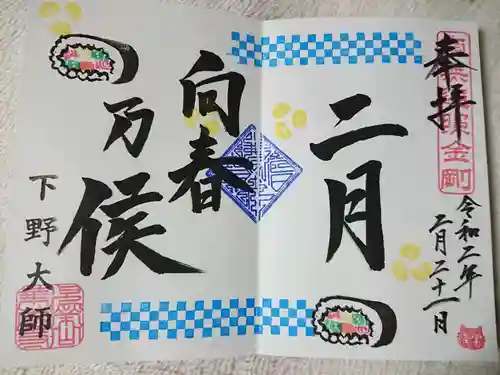 奉拝
二月
向春
万侯
下野大師
令和二年
二月二十一日